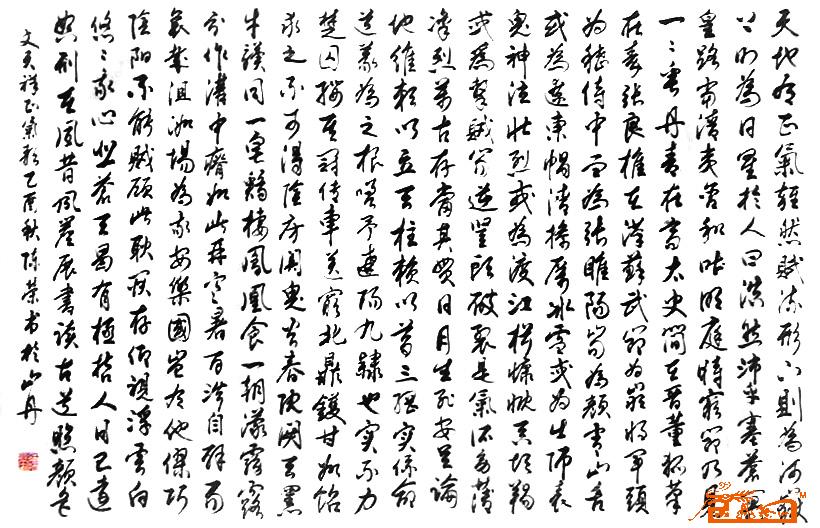 天地有正氣雜然賦流形下則為河嶽
上則為日星於人曰浩然沛乎塞蒼冥
皇路當清夷含和吐明庭時窮節乃見
一一垂丹青在齊太史簡在晉董狐筆
在秦張良椎在漢蘇武節為嚴將軍頭
為嵇侍中血為張睢陽齒為顏常山舌
或為遼東帽清操厲冰雪或為出師表
鬼神泣壯烈或為渡江楫慷慨吞胡羯
或為擊賊笏逆豎頭破裂是氣所磅薄
凜烈萬古存當其貫日月生死安足論
地維賴以立天柱賴以尊三綱實係命
道義為之根嗟予遘陽九隸也實不力
楚囚纓其冠傳車送窮北鼎鑊甘如飴
求之不可得陰房闃鬼火春院閟天黑
牛驥同一皂鷄棲鳳凰食一朝濛霧露
分作溝中瘠如此再寒暑百沴自辟易
哀哉沮洳場為我安樂國豈有他繆巧
陰陽不能賊顧此耿耿存仰視浮雲白
悠悠我心悲蒼天曷有極哲人日已遠
典刑在夙昔風簷展書讀古道照顏色
文天祥正氣歌乙酉秋陳榮書於山丹